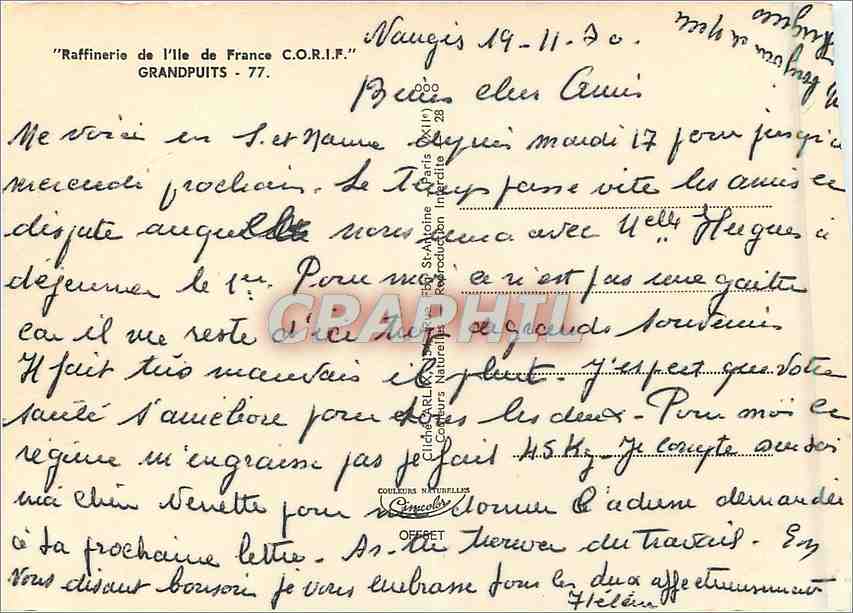 "Raffinerie de l'Ile de France C.O.R.I.F."
GRANDPUITS - 77.
Nangis 19-11-70.
Biens chers Amis
Me voici en S. et Marne depuis mardi 17 pour jusqu'à
mercredi prochain. Le Temps passe vite les amis se
dispute nous avec Melle Hugues à
déjeuner le 1er. Pour moi ce n'est pas une gaîtée
car il me reste d'ici trop de grands souvenirs
Il fait très mauvais il pleut. J'espère que votre
santé s'améliore pour tous les deux. Pour moi ce
régime m'engraisse pas je fait 45 Kg. Je compte sur toi
ma chère Nenette pour me donner l'adresse demandée
à ta prochaine lettre. As-tu trouver du travail. En
vous disant bonsoir je vous embrasse tous les deux affectueusement
Hélène
Cliché ARLIX, Rue Fbg St-Antoine Paris (XIIe)
Couleurs Naturelles Reproduction Interdite 28
COULEURS NATURELLES
OFFSET
CRAPHIL